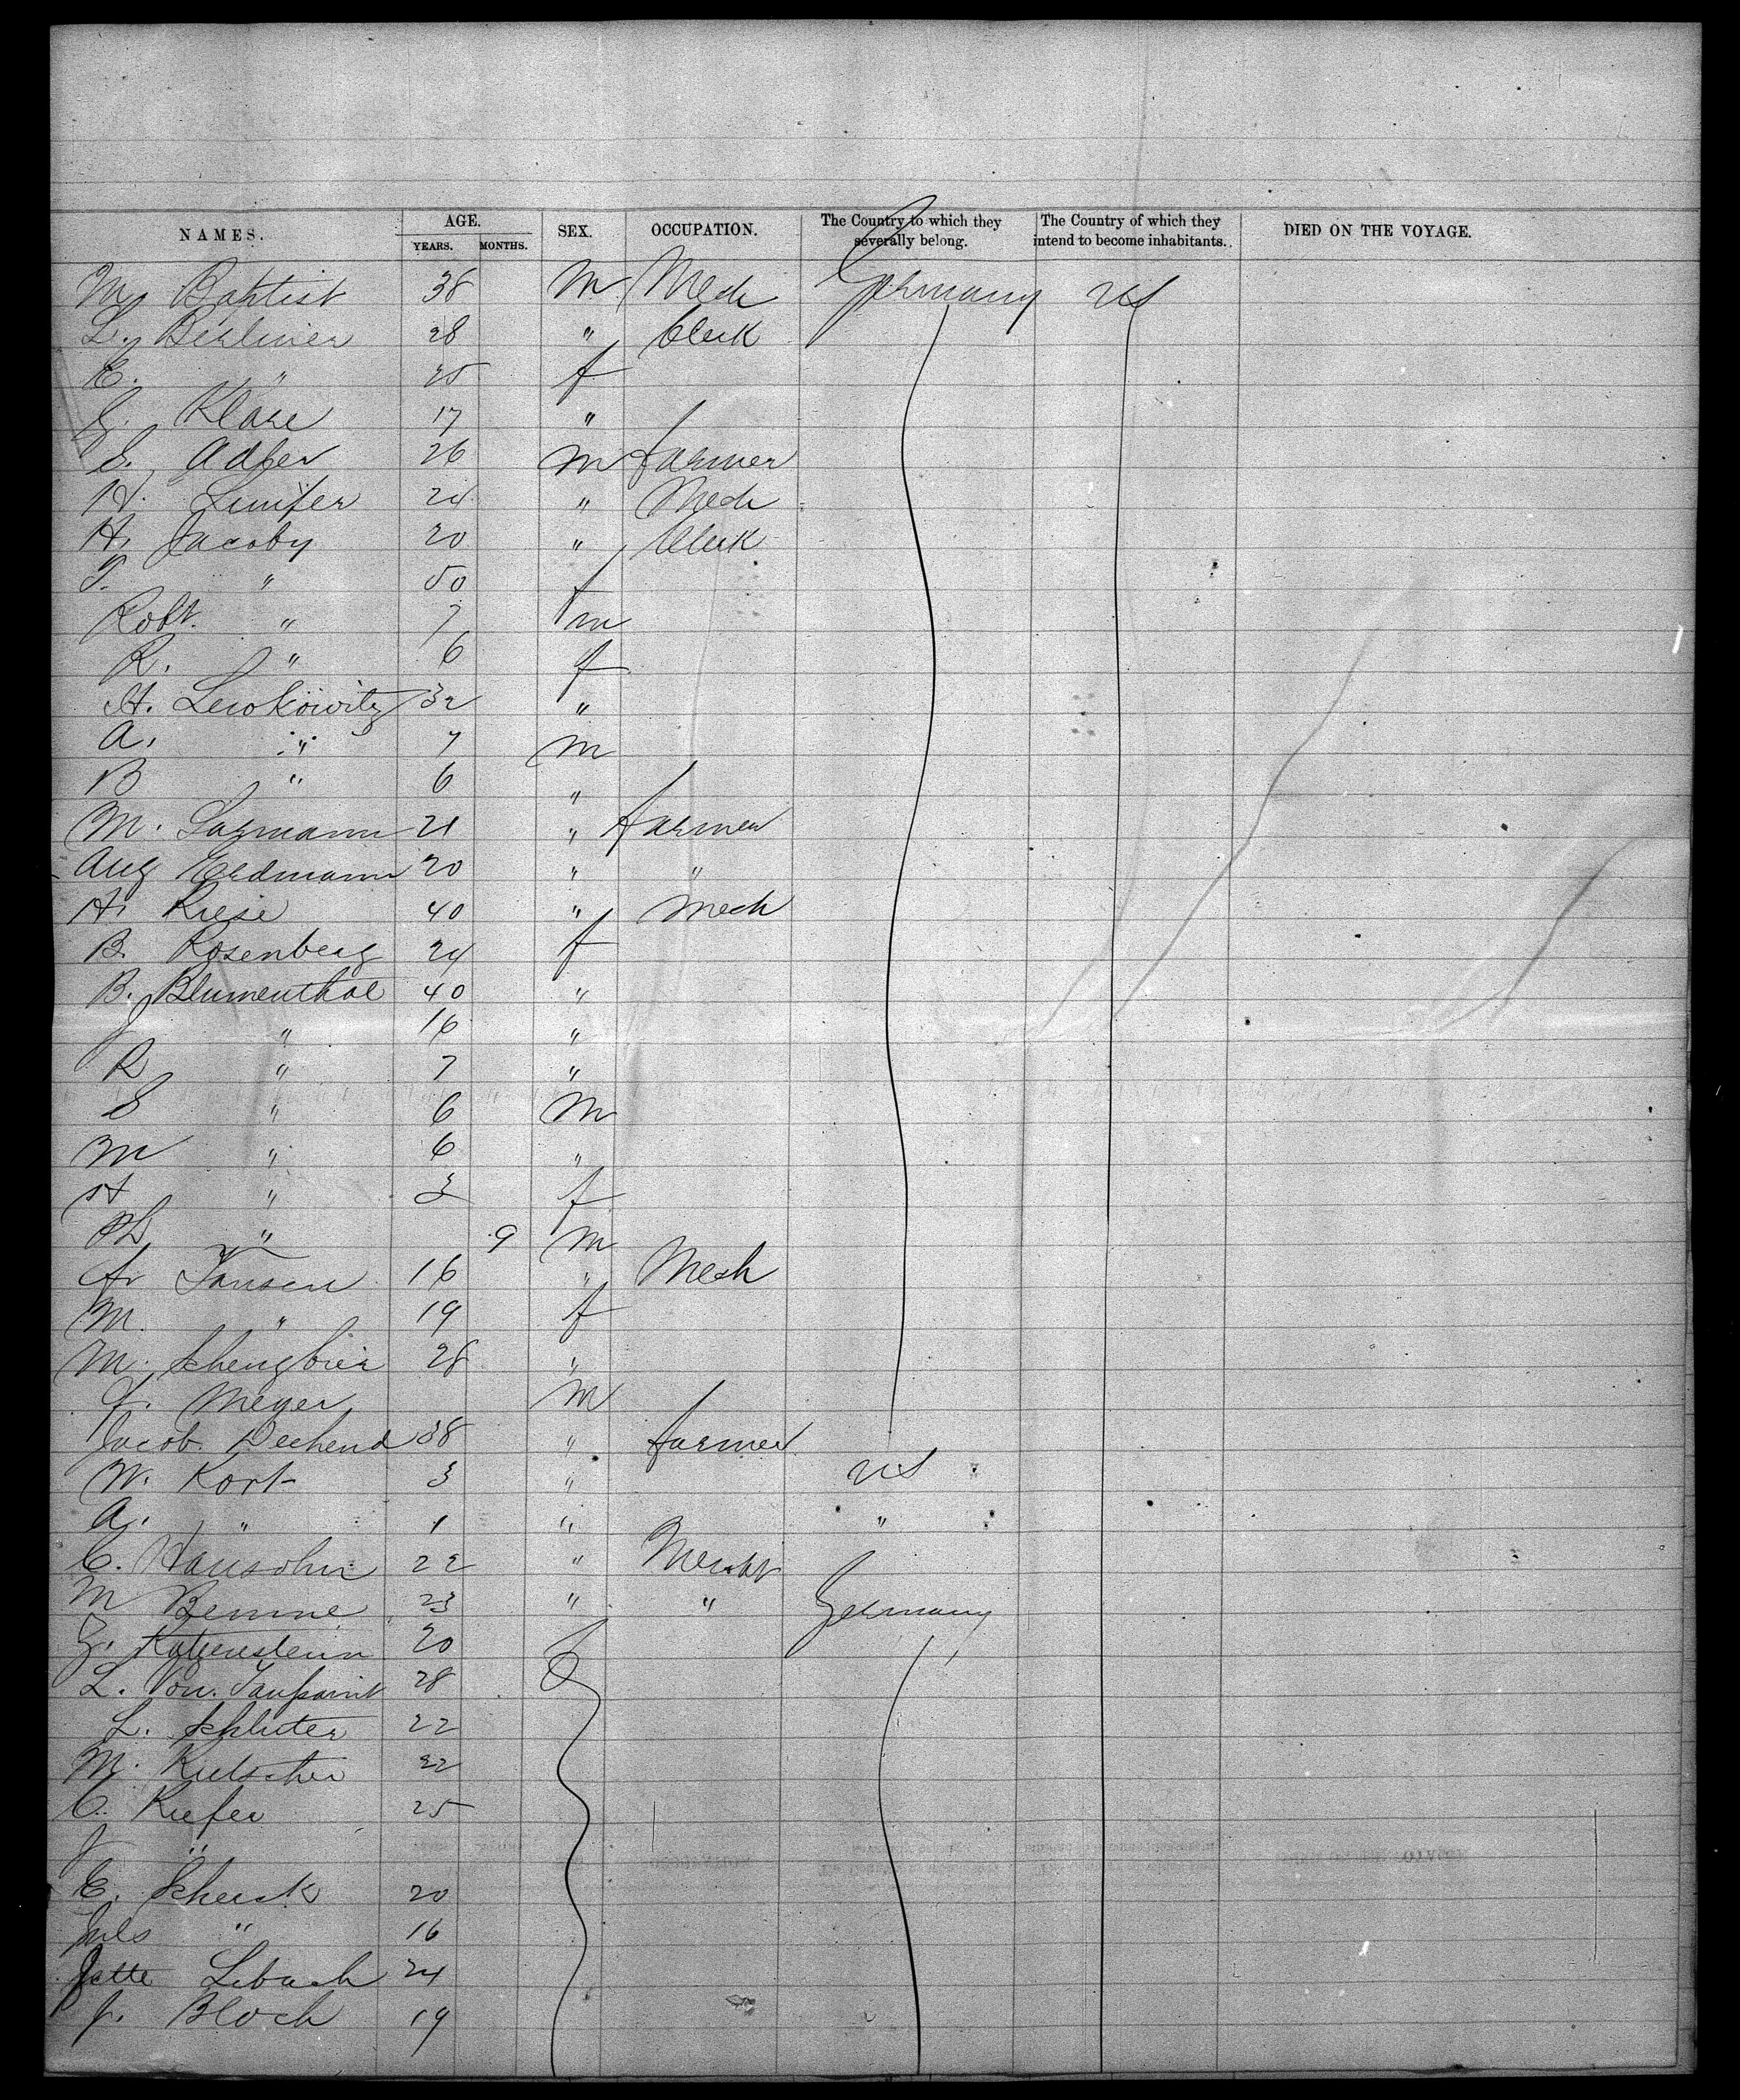 NAMES. AGE. YEARS. MONTHS. SEX. OCCUPATION. The Country to which they severally belong. The Country of which they intend to become inhabitants. DIED ON THE VOYAGE.
M. Baptist 38 M Mech Germany US
L. Berliner 28 " Clerk
E. " 25 f
G. Klare 17 "
S. Adler 26 M farmer
H. 24 " Mech
H. Jacoby 20 " Clerk
T. " 50 f
Robt. " 7 m
R. " 6 f
H. Lewkowitz 32 "
A. " 7 M
B " 6 "
M. 21 " farmer
Aug Erdmann 20 " "
H. Riese 40 " Mech
B. Rosenberg 24 f
B. Blumenthal 40 "
J " 16 "
R " 7 "
S " 6 M
M " 6 "
H " 3 f
" 9 M
Jansen 16 " Mech
M. " 19 f
M. 28 "
Meyer M
Jacob Dechend 38 " farmer
W. Kort 3 " US
A. " 1 " "
C. 22 " Mercht
M 23 " " Germany
Katzenstein 20 f
L. Von 28
L. Schluter 22
M. Kutscher 22
C. Kiefer 25
J "
E. Scherck 20
Jules " 16
Jette Libach 24
J. Bloch 19